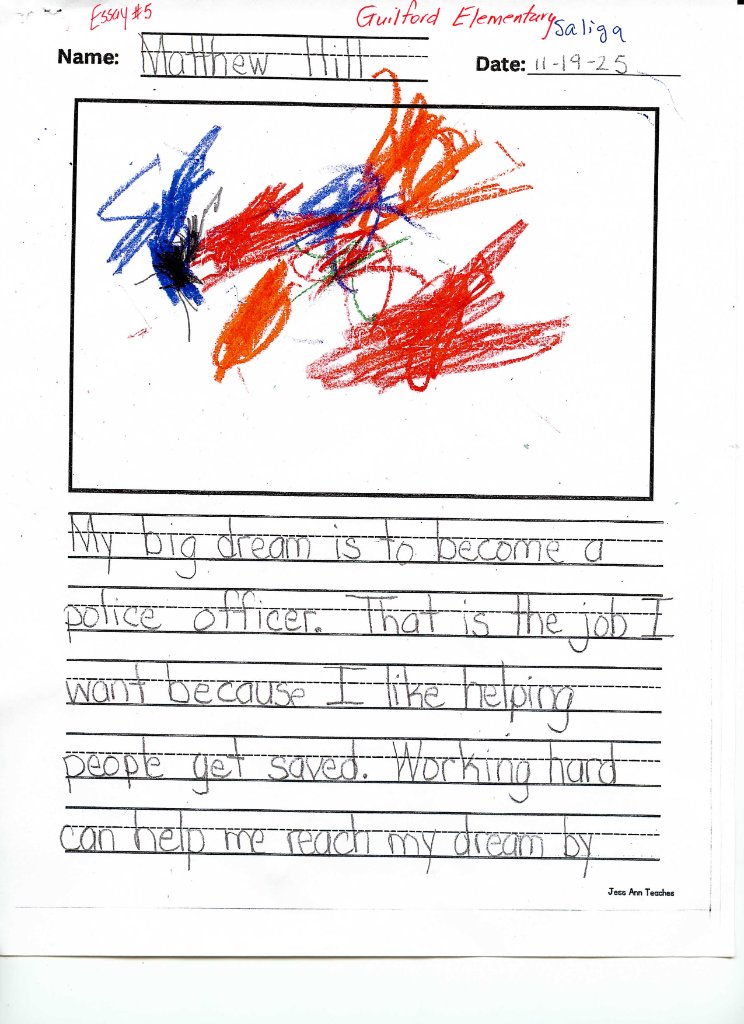 Essay #5
Guilford Elementary
Saliga
Name: Matthew Hill
Date: 11-19-25
My big dream is to become a
police officer. That is the job I
want because I like helping
people get saved. Working hard
can help me reach my dream by
Jess Ann Teaches